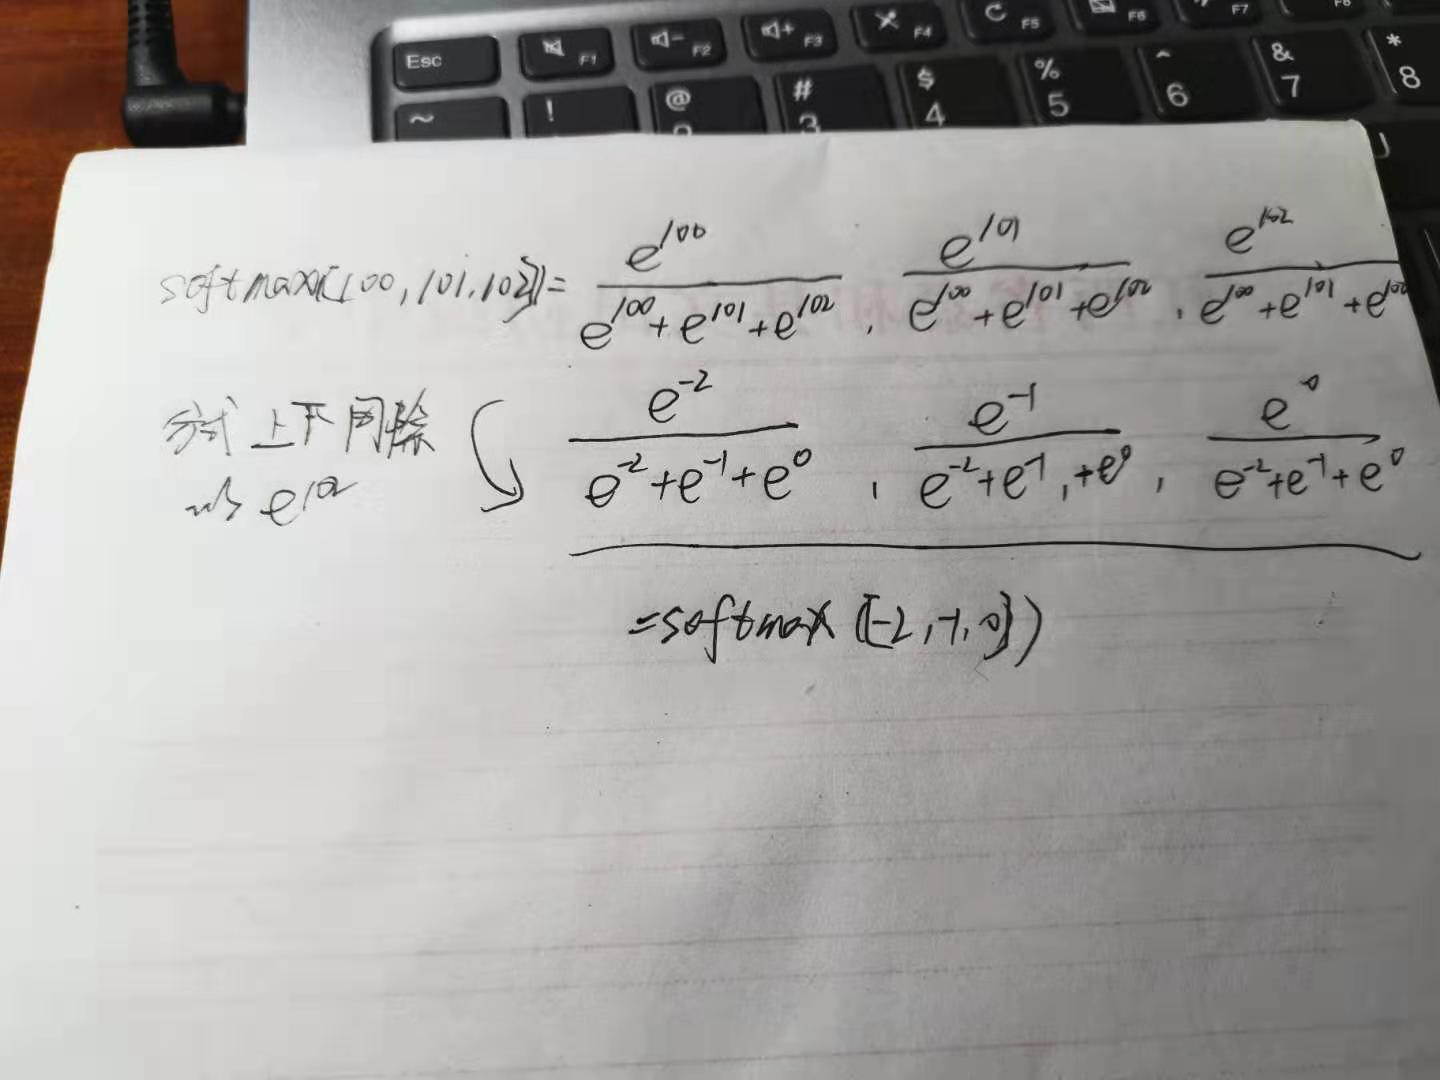 Esc F1 F2 F3 F4 C F5 F6 F7
~ ! @ # 3 $ 4 % 5 ^ 6 & 7 * 8
softmax([100,101,102])= e^100/(e^100+e^101+e^102), e^101/(e^100+e^101+e^102), e^102/(e^100+e^101+e^102
分式上下同除 e^-2/(e^-2+e^-1+e^0), e^-1/(e^-2+e^-1,+e^0), e^0/(e^-2+e^-1+e^0)
以 e^102
=softmax([-2,-1,0])